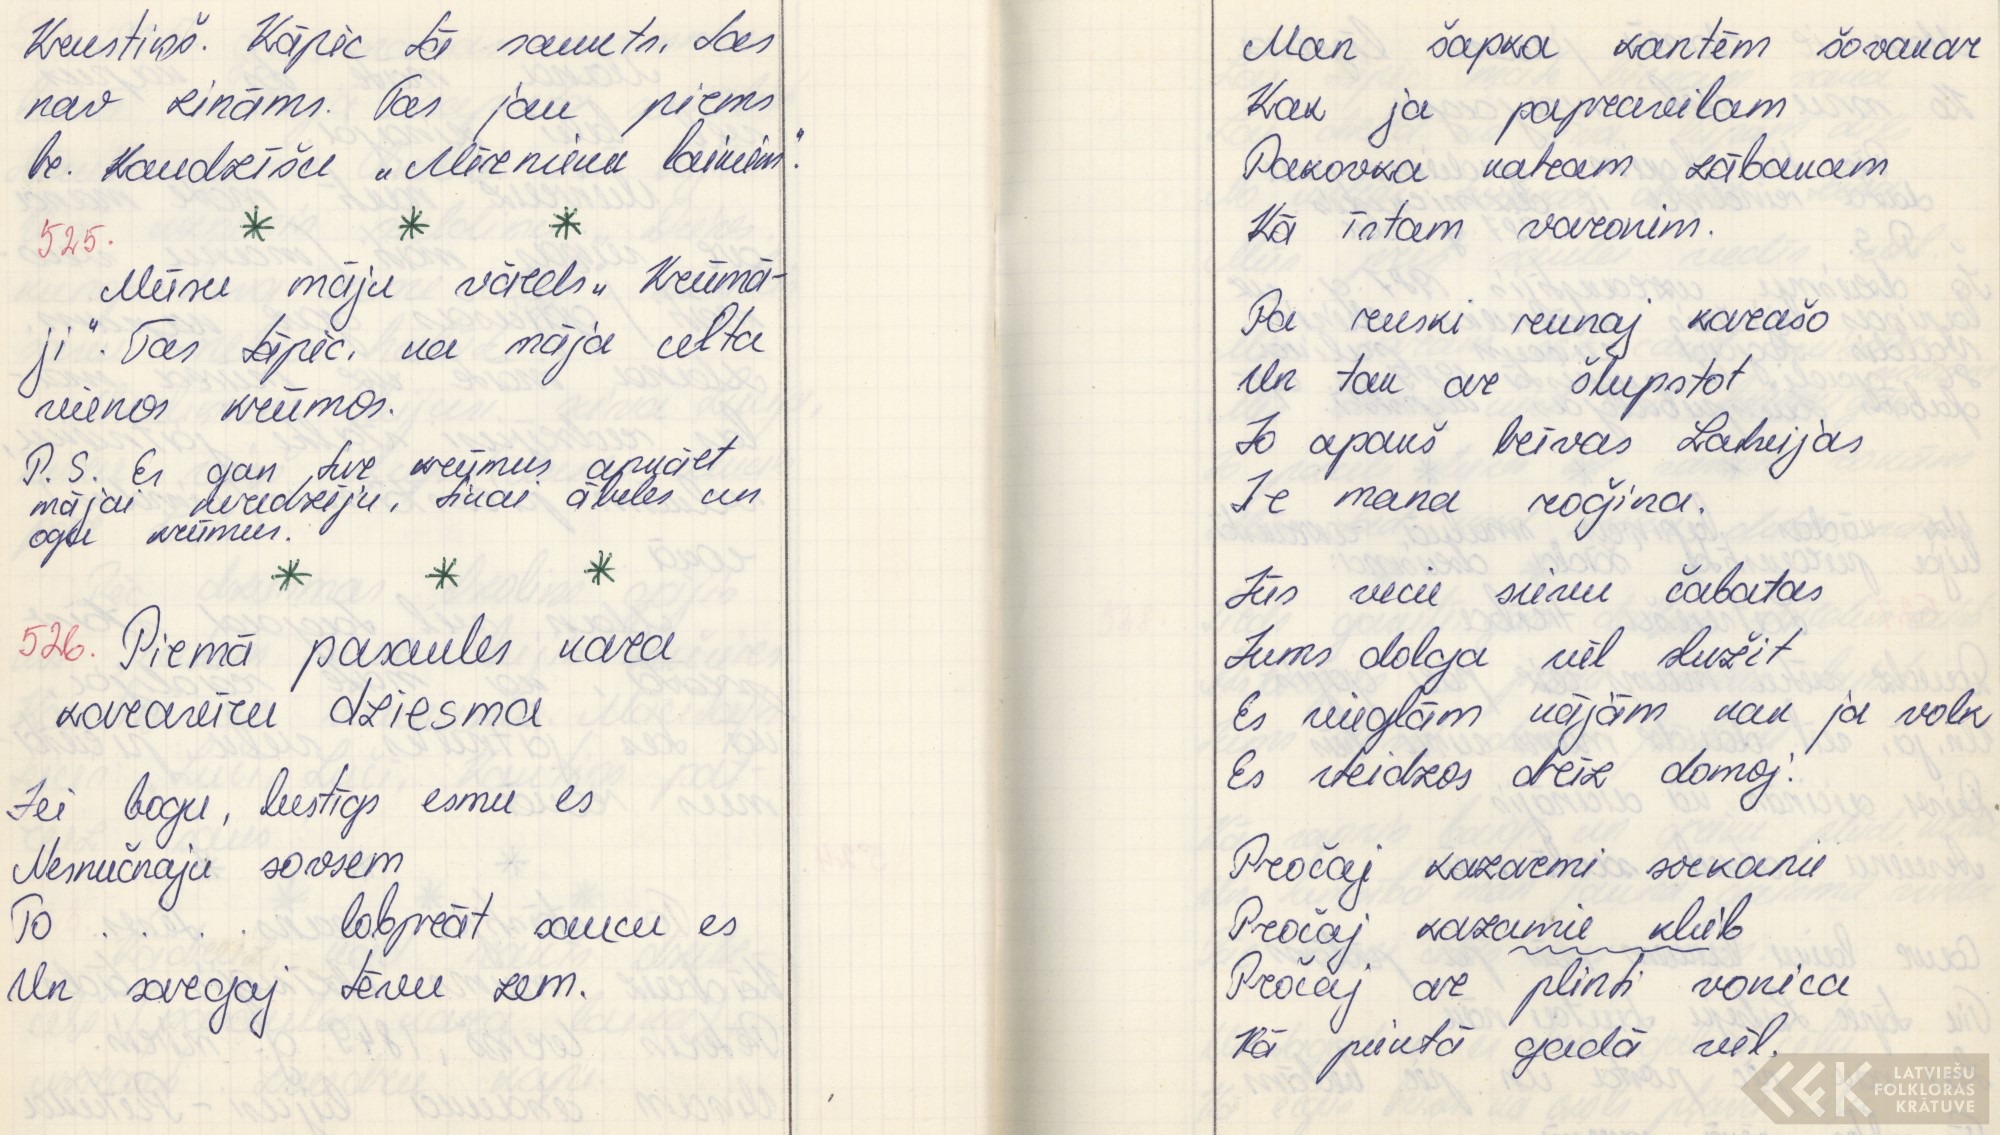 Krustiņš. Kāpēc tā saukts, tas
nav zināms. Tas jau pirms
br. Kaudzīšu „Mērnieku laikiem".
* * *
525.
Mūsu māju vārds „Krūmā-
ji". Tas tāpēc, ka māja celta
vienos krūmos.
P.S. Es gan tur krūmus apkārt
mājai neredzēju, tikai ābeles un
ogu krūmus.
* * *
526. Pirmā pasaules kara
karavīru dziesma
Jei bogu, lustīgs esmu es
Nesnučnaju sovsem
To . . . . labprāt saucu es
Un svegaj tēvu zem.
Man šapka kantēm šovakar
Kak ja papravilam
Pakovka katram zābakam
Kā īstam varonim.
Pa ruski runaj karašo
Un tak ar šlupstot
Jo apakš brīvas Latvijas
Ir mana roģina.
Jūs vecie sievu čabatas
Jums dolga vēl služit
Es vieglām kājām kak ja volk
Es steidzos drīz domoj.
Pročaj kazarmi srekanie
Pročaj kazamie klieb
Pročaj ar plinti vonica
Kā piektā gadā vēl.
LATVIEŠU
FOLKLORAS
KRĀTUVE